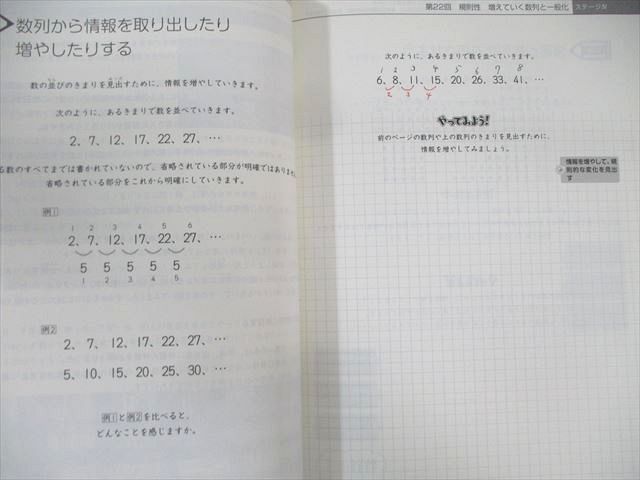 数列から情報を取り出したり
増やしたりする
数の並びのきまりを見出すために、情報を増やしていきます。
次のように、あるきまりで数を並べていきます。
2、7、12、17、22、27、…
る数のすべてまでは書かれていないので、省略されている部分が明確ではありません
省略されている部分をこれから明確にしていきます。
例1
1 2 3 4 5 6
2、7、12、17、22、27、…
5 5 5 5 5
1 2 3 4 5
例2
2、7、12、17、22、27、…
5、10、15、20、25、30、…
例1と例2を比べると、
どんなことを感じますか。
第22回 規則性 増えていく数列と一般化 ステージⅣ
次のように、あるきまりで数を並べていきます。
1 2 3 4 5 6 7 8
6、8、11、15、20、26、33、41、…
2 3 4
やってみよう!
前のページの数列や上の数列のきまりを見出すために、
情報を増やしてみましょう。
情報を増やして、規
則的な変化を見出
す